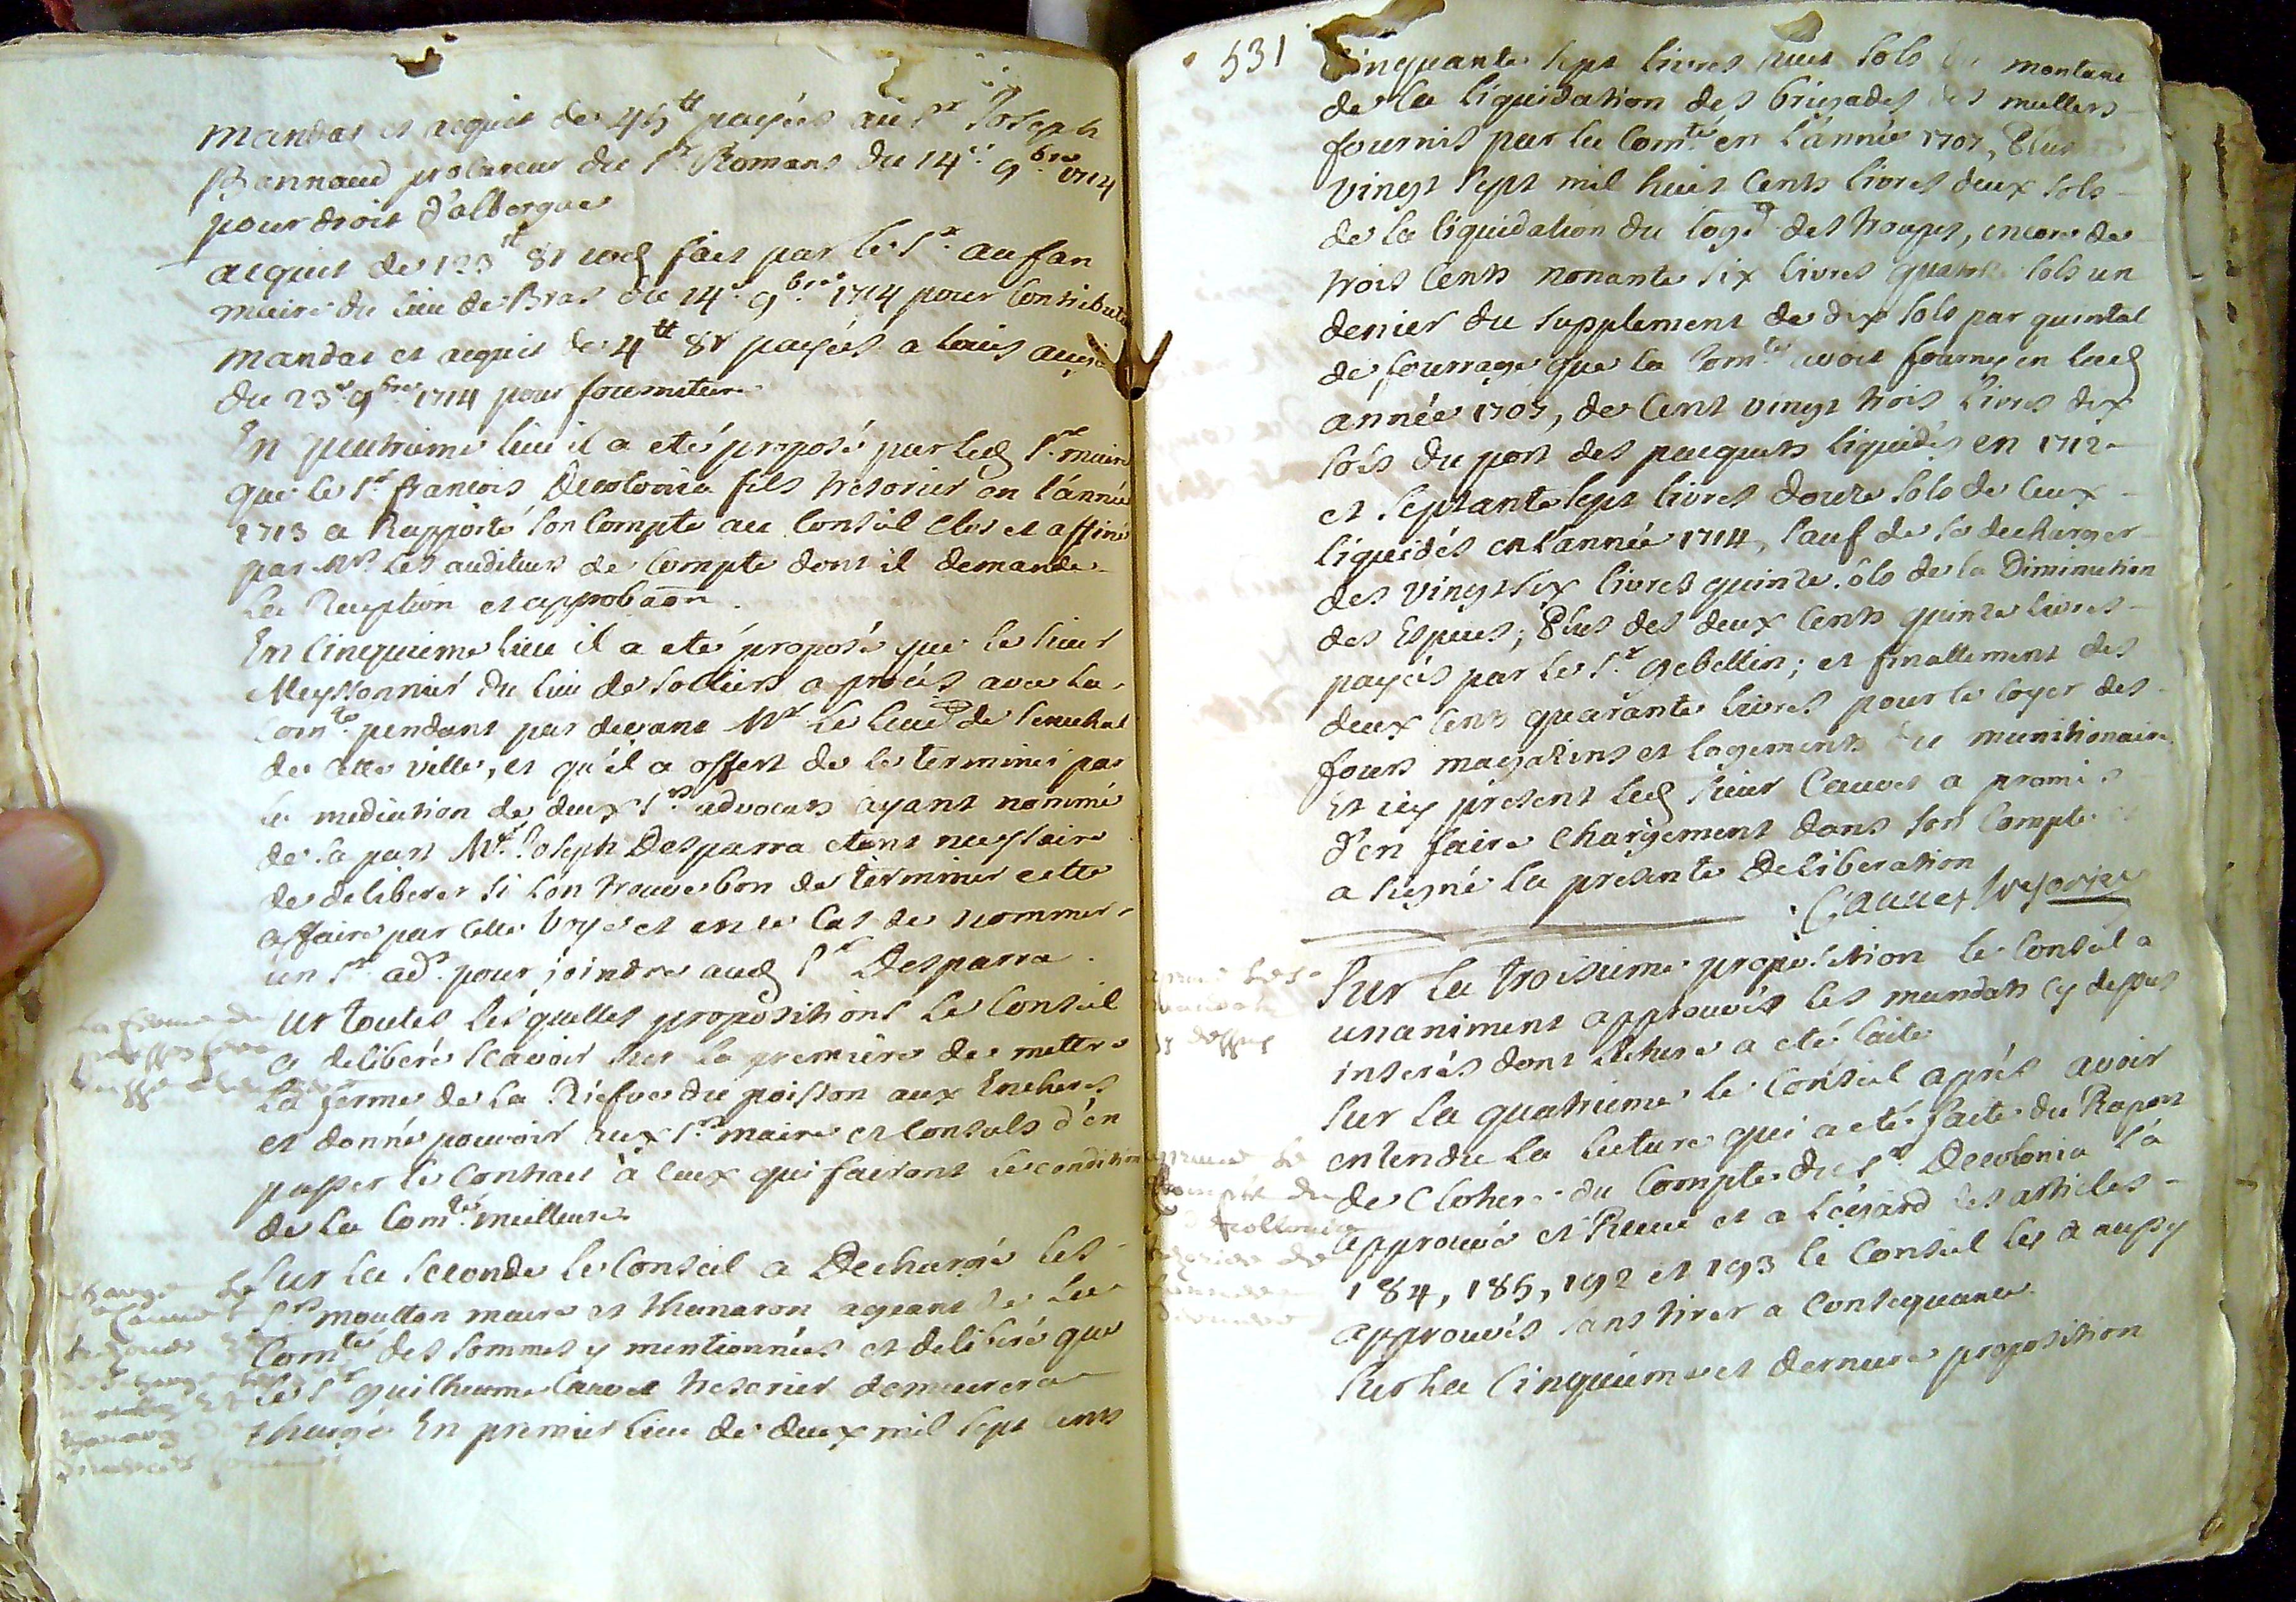 mandat et acquit de 45tt payées au Sr Joseph
Bannaud procureur du Sr Romans du 14e 9bre 1714
pour droit d'albergue
acquit de 123tt 8s fait par le Sr aufan
maire du lieu de Bras du 14e 9bre 1714 pour
mandat et acquit de 4tt 8s payées a Louis
du 23e 9bre 1714 pour fourniture
En quatrieme lieu il a eté proposé par led Sr maire
que le Sr francois Decolonia fils tresorier en l'année
1713 a Rapporté son Compte au Conseil Clos et affiné
par Mrs les auditeurs de Compte dont il demande
la Reception et approbaon.
En Cinquieme lieu il a eté proposé que le sieur
Meyssonnier du lieu de Solliers a procés avec la
Comté pendant par devant Mr le lieut de senechal
de cette ville, et qu'il a offert de le terminer par
la mediation de deux Srs advocats ayant nommé
de sa part Mr Joseph Desparra etant necessaire
de deliberer si l'on trouve bon de terminer cette
affaire par cette voye et en ce Cas de nommer
un Sr ad. pour joindre aud Sr Desparra.
ur toutes lesquelles propositions le Conseil
a deliberé scavoir sur la premiere de mettre
la ferme de la Riefve du poisson aux Encheres
et donné pouvoir aux Srs maire et Consuls d'en
passer le Contract à ceux qui fairont la condition
de la Comté meilleure
Sur la seconde le Conseil a Dechargé les
Srs moutton maire et thanaron ageant de la
Comté des sommes y mentionnées et deliberé que
le Sr guilheaume Cauvet tresorier demeurera
Chargé En premier lieu de deux mil sept cents
531
Cinquante sept livres huit sols montant
de la liquidation des brigades des mullets
fournis par la Comté en l'année 1707, Plus
vingt sept mil huit Cents livres deux sols
de la liquidation du logt des troupes, encore de
trois Cents nonante six livres quatorze sols un
denier du supplement de dix sols par quintal
de fourrage que la Comté avoit fourny en lad
année 1707, de Cent vingt trois livres dix
sols du port des pacquets liquidés en 1712
et septante sept livres douze sols de Ceux
liquidés en l'année 1714, sauf de se decharger
des vingt six livres quinze sols de la Diminution
des Especes; Plus des deux Cents quinze livres
payées par le Sr gebellin; et finallement des
deux Cents quarante livres pour le loyer des
fours magazins et logements du munitionaire
Et icy present led sieur Cauvet a promis
d'en faire Chargement dans son Compte et
a signé la presente Deliberation
Cauvet tresorier
approuve les
mandats
cy dessus
Sur la troisieme proposition le Conseil a
unaniment approuvés les mandats cy dessus
inserés dont lecture a eté faite
Sur la quatrieme le Conseil aprés avoir
entendu la lecture qui a eté faite du Raport
de Cloture du Compte du Sr Decolonia l'a
approuvé et Receu et a l'égard des articles
184, 185, 192 et 193 le Conseil les a aussy
approuvés sans tirer a Consequance
Sur la Cinquieme et derniere proposition